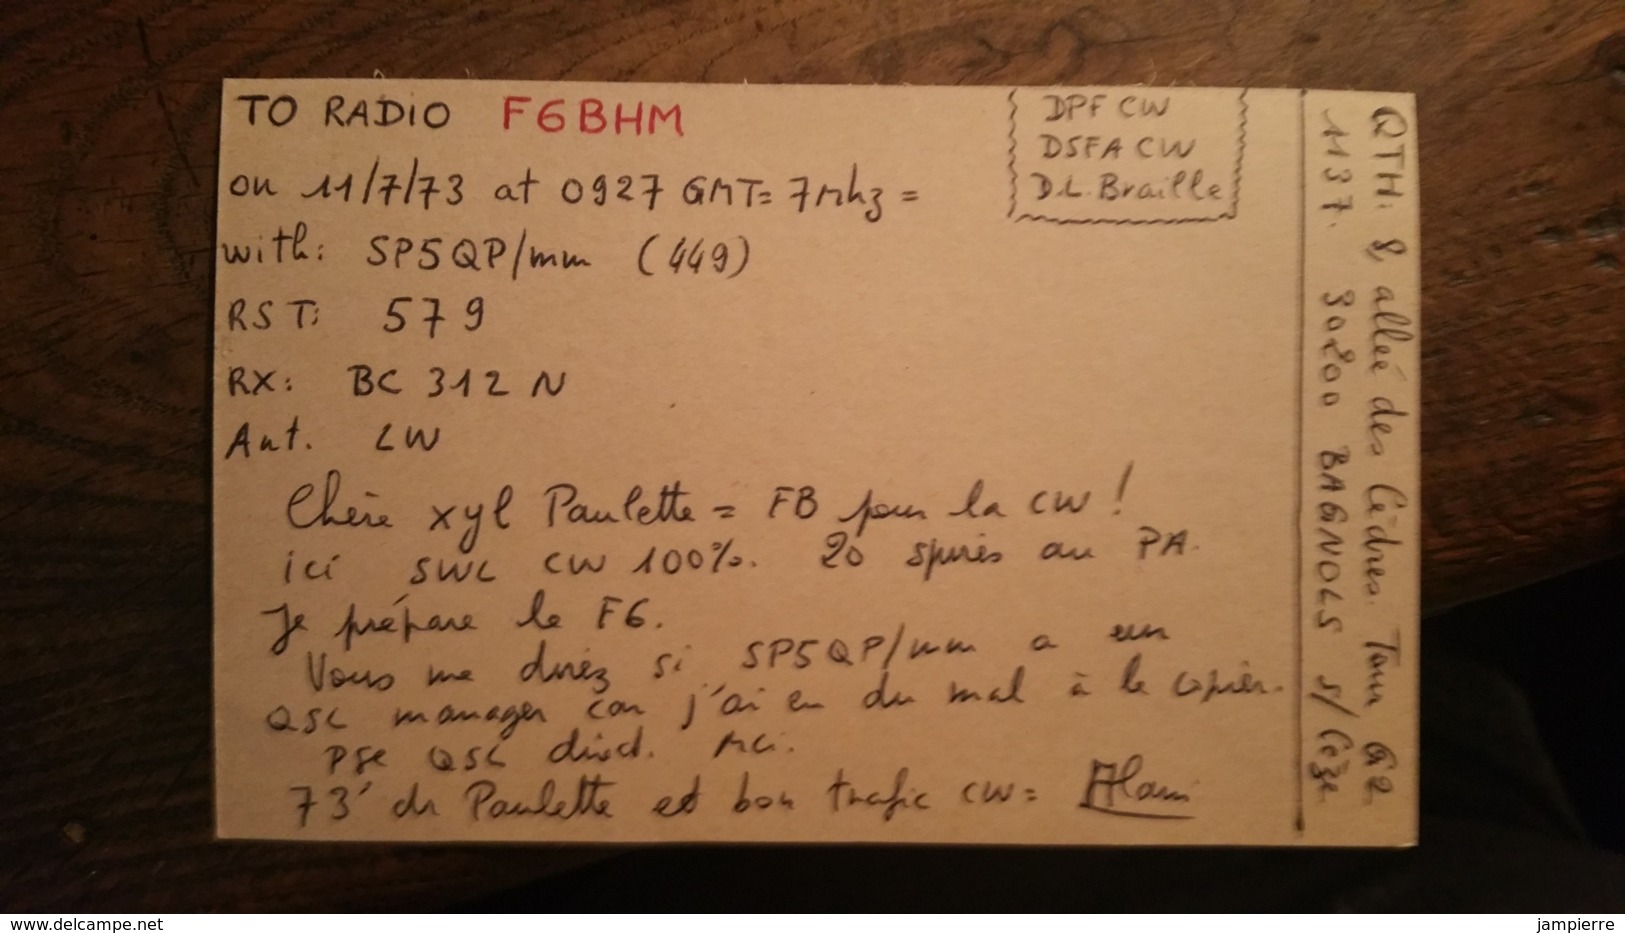 TO RADIO F6BHM
on 11/7/73 at 0927 GMT= 7Mhz =
with: SP5QP/mm (449)
RST: 579
RX: BC 312 N
Ant. LW
Chère xyl Paulette = FB pour la CW !
ici SWL CW 100%. 20 spires au PA.
Je prépare le F6.
Vous me direz si SP5QP/mm a un
QSL manager car j'ai eu du mal à le copier.
PSE QSL direct. Mci.
73' dr Paulette et bon trafic CW= Alain
DPF CW
DSFA CW
D.L. Braille
QTH: 8 allée des Cèdres. Tour G2
1137. 30200 BAGNOLS s/ Cèze
© www.delcampe.net
jampierre